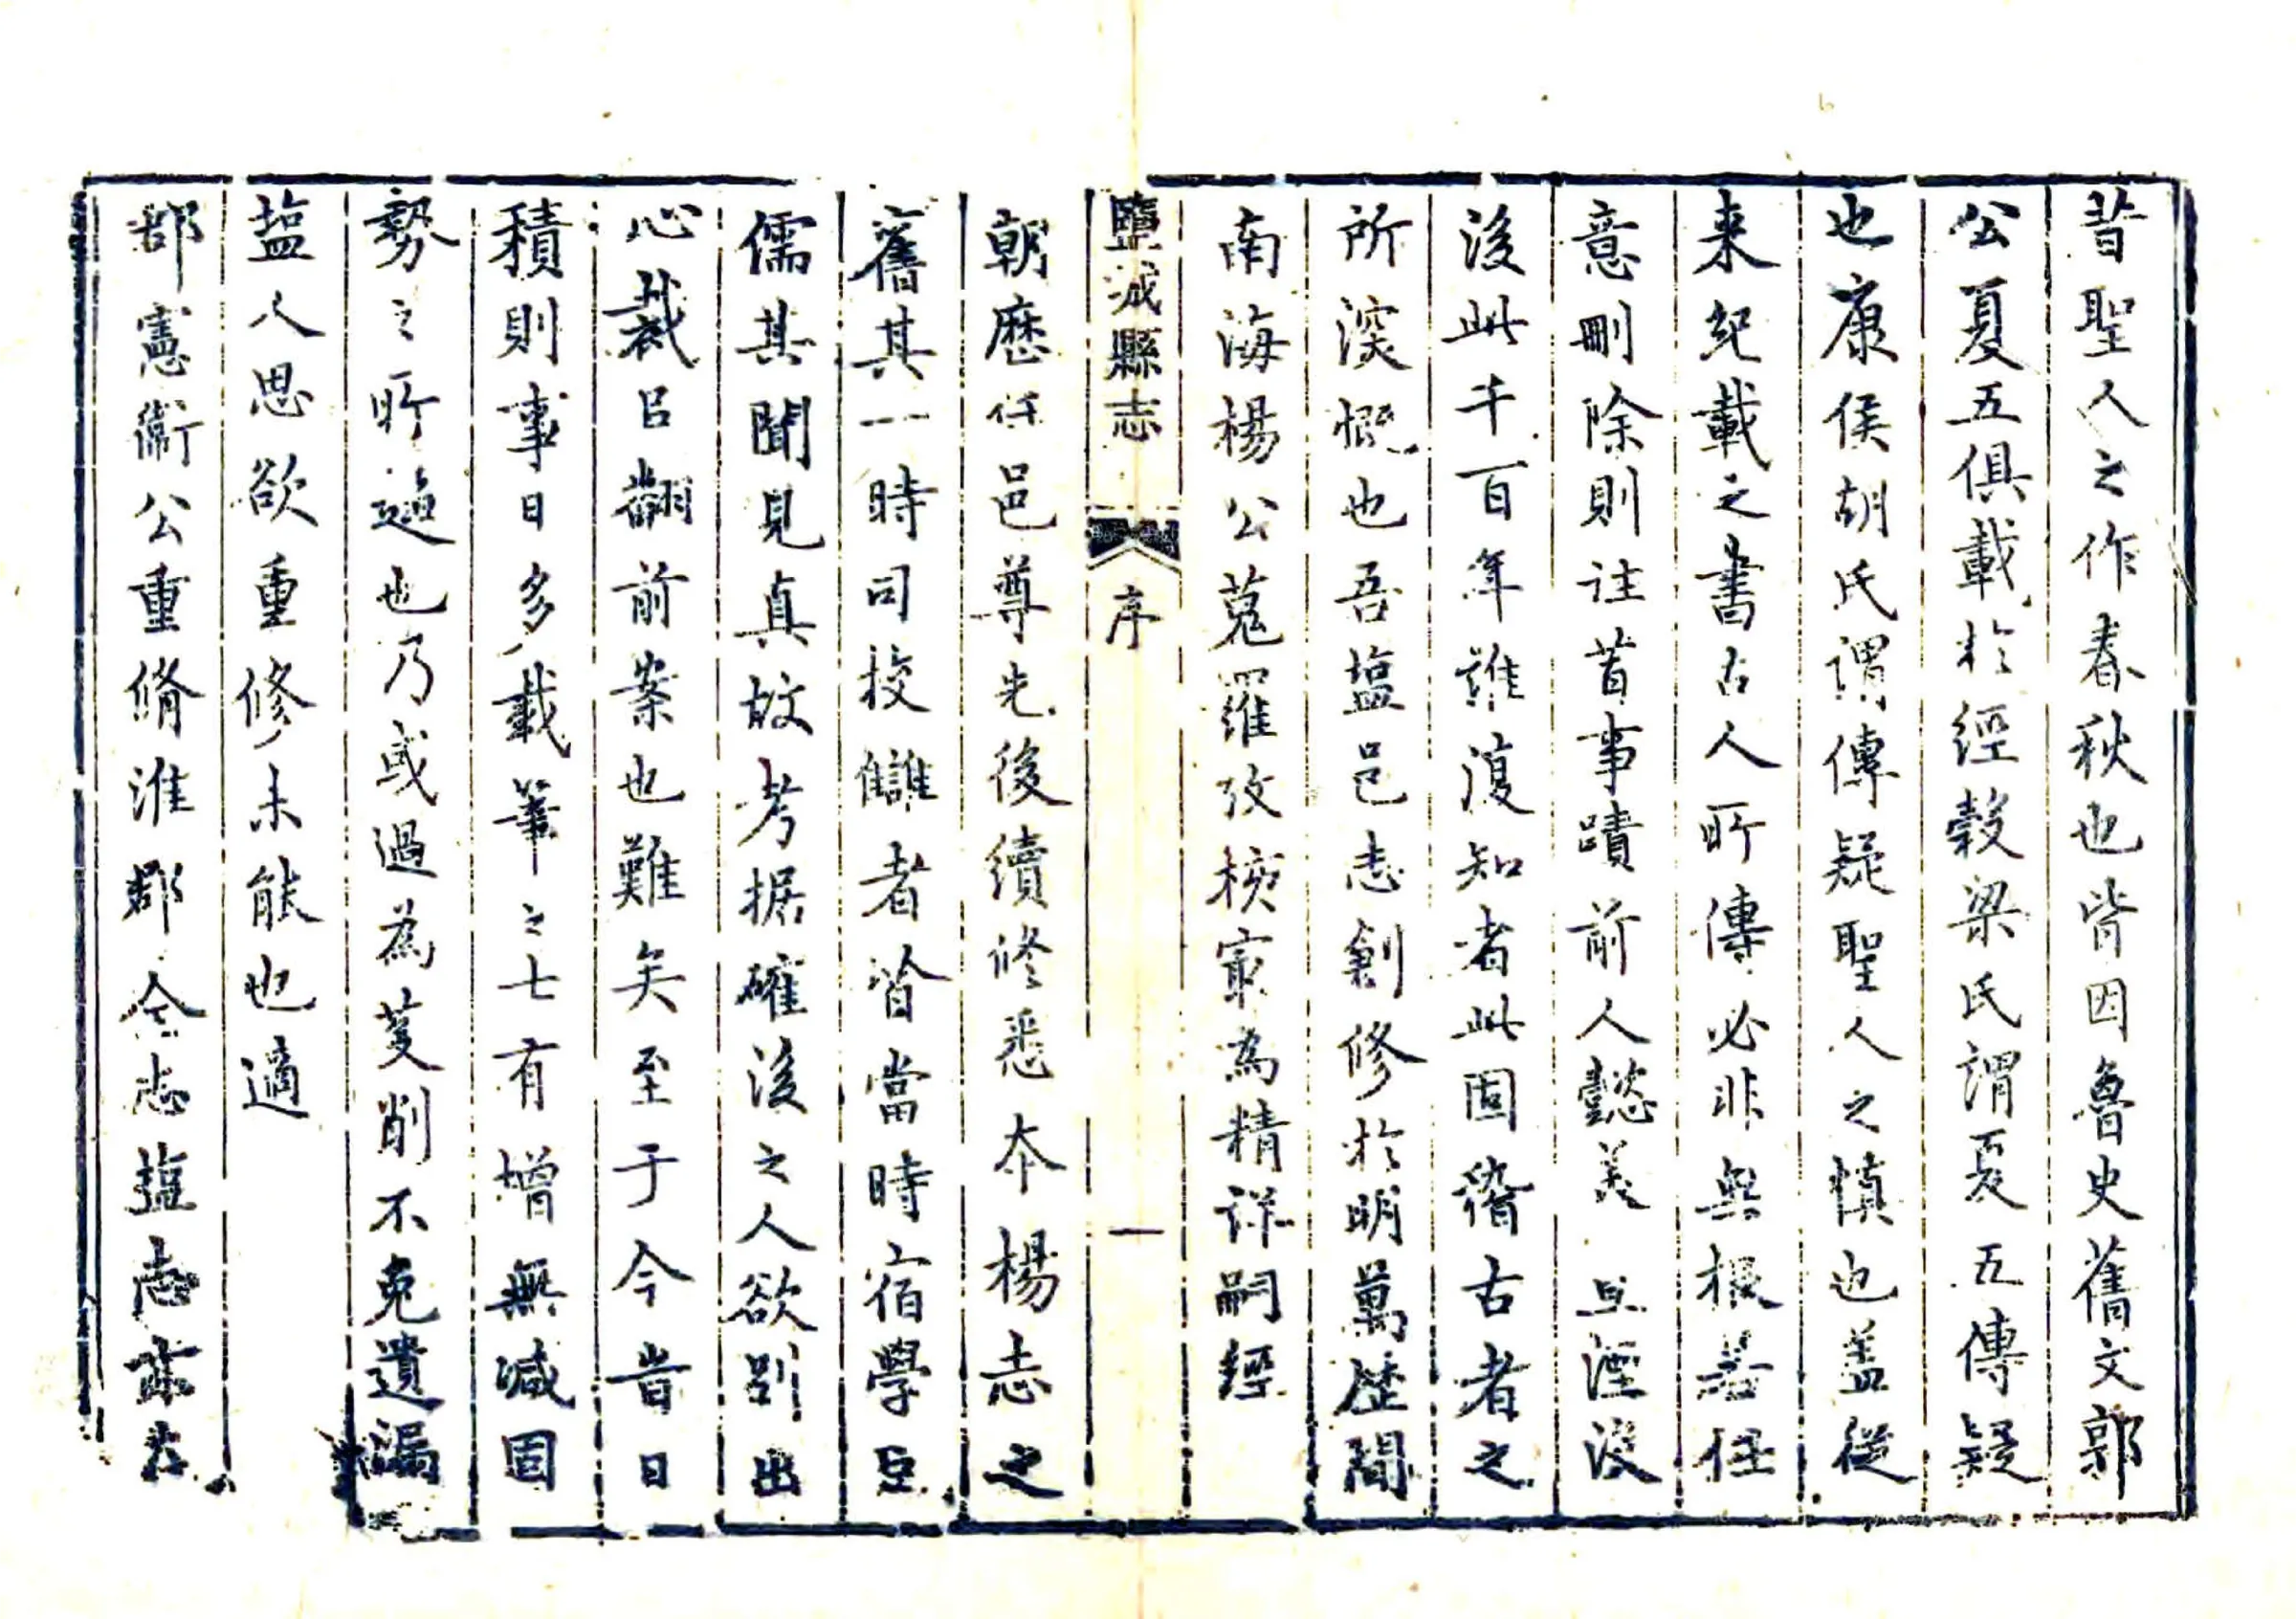 昔聖人之作春秋也皆因魯史舊文郭
公夏五俱載於經穀梁氏謂夏五傳疑
也康侯胡氏謂傳疑聖人之慎也盖從
来紀載之書古人所傳必非無根若任
意刪除則註首事蹟前人懿美且湮没
後此千百年誰復知者此固稽古者之
所深慨也吾塩邑志創修於明萬歷間
南海楊公蒐羅攷核冣為精詳嗣經
鹽城縣志 序 一
朝歷任邑尊先後續修悉本楊志之
舊其一時司校讎者皆當時宿學巨
儒其聞見真故考据確後之人欲別出
心裁㠯翻前案也難矣至于今昔日
積則事日多載筆之士有增無減固
勢之所趨也乃或過為芟削不免遺漏
塩人思欲重修未能也適
郡憲衛公重脩淮郡全志塩志亦在